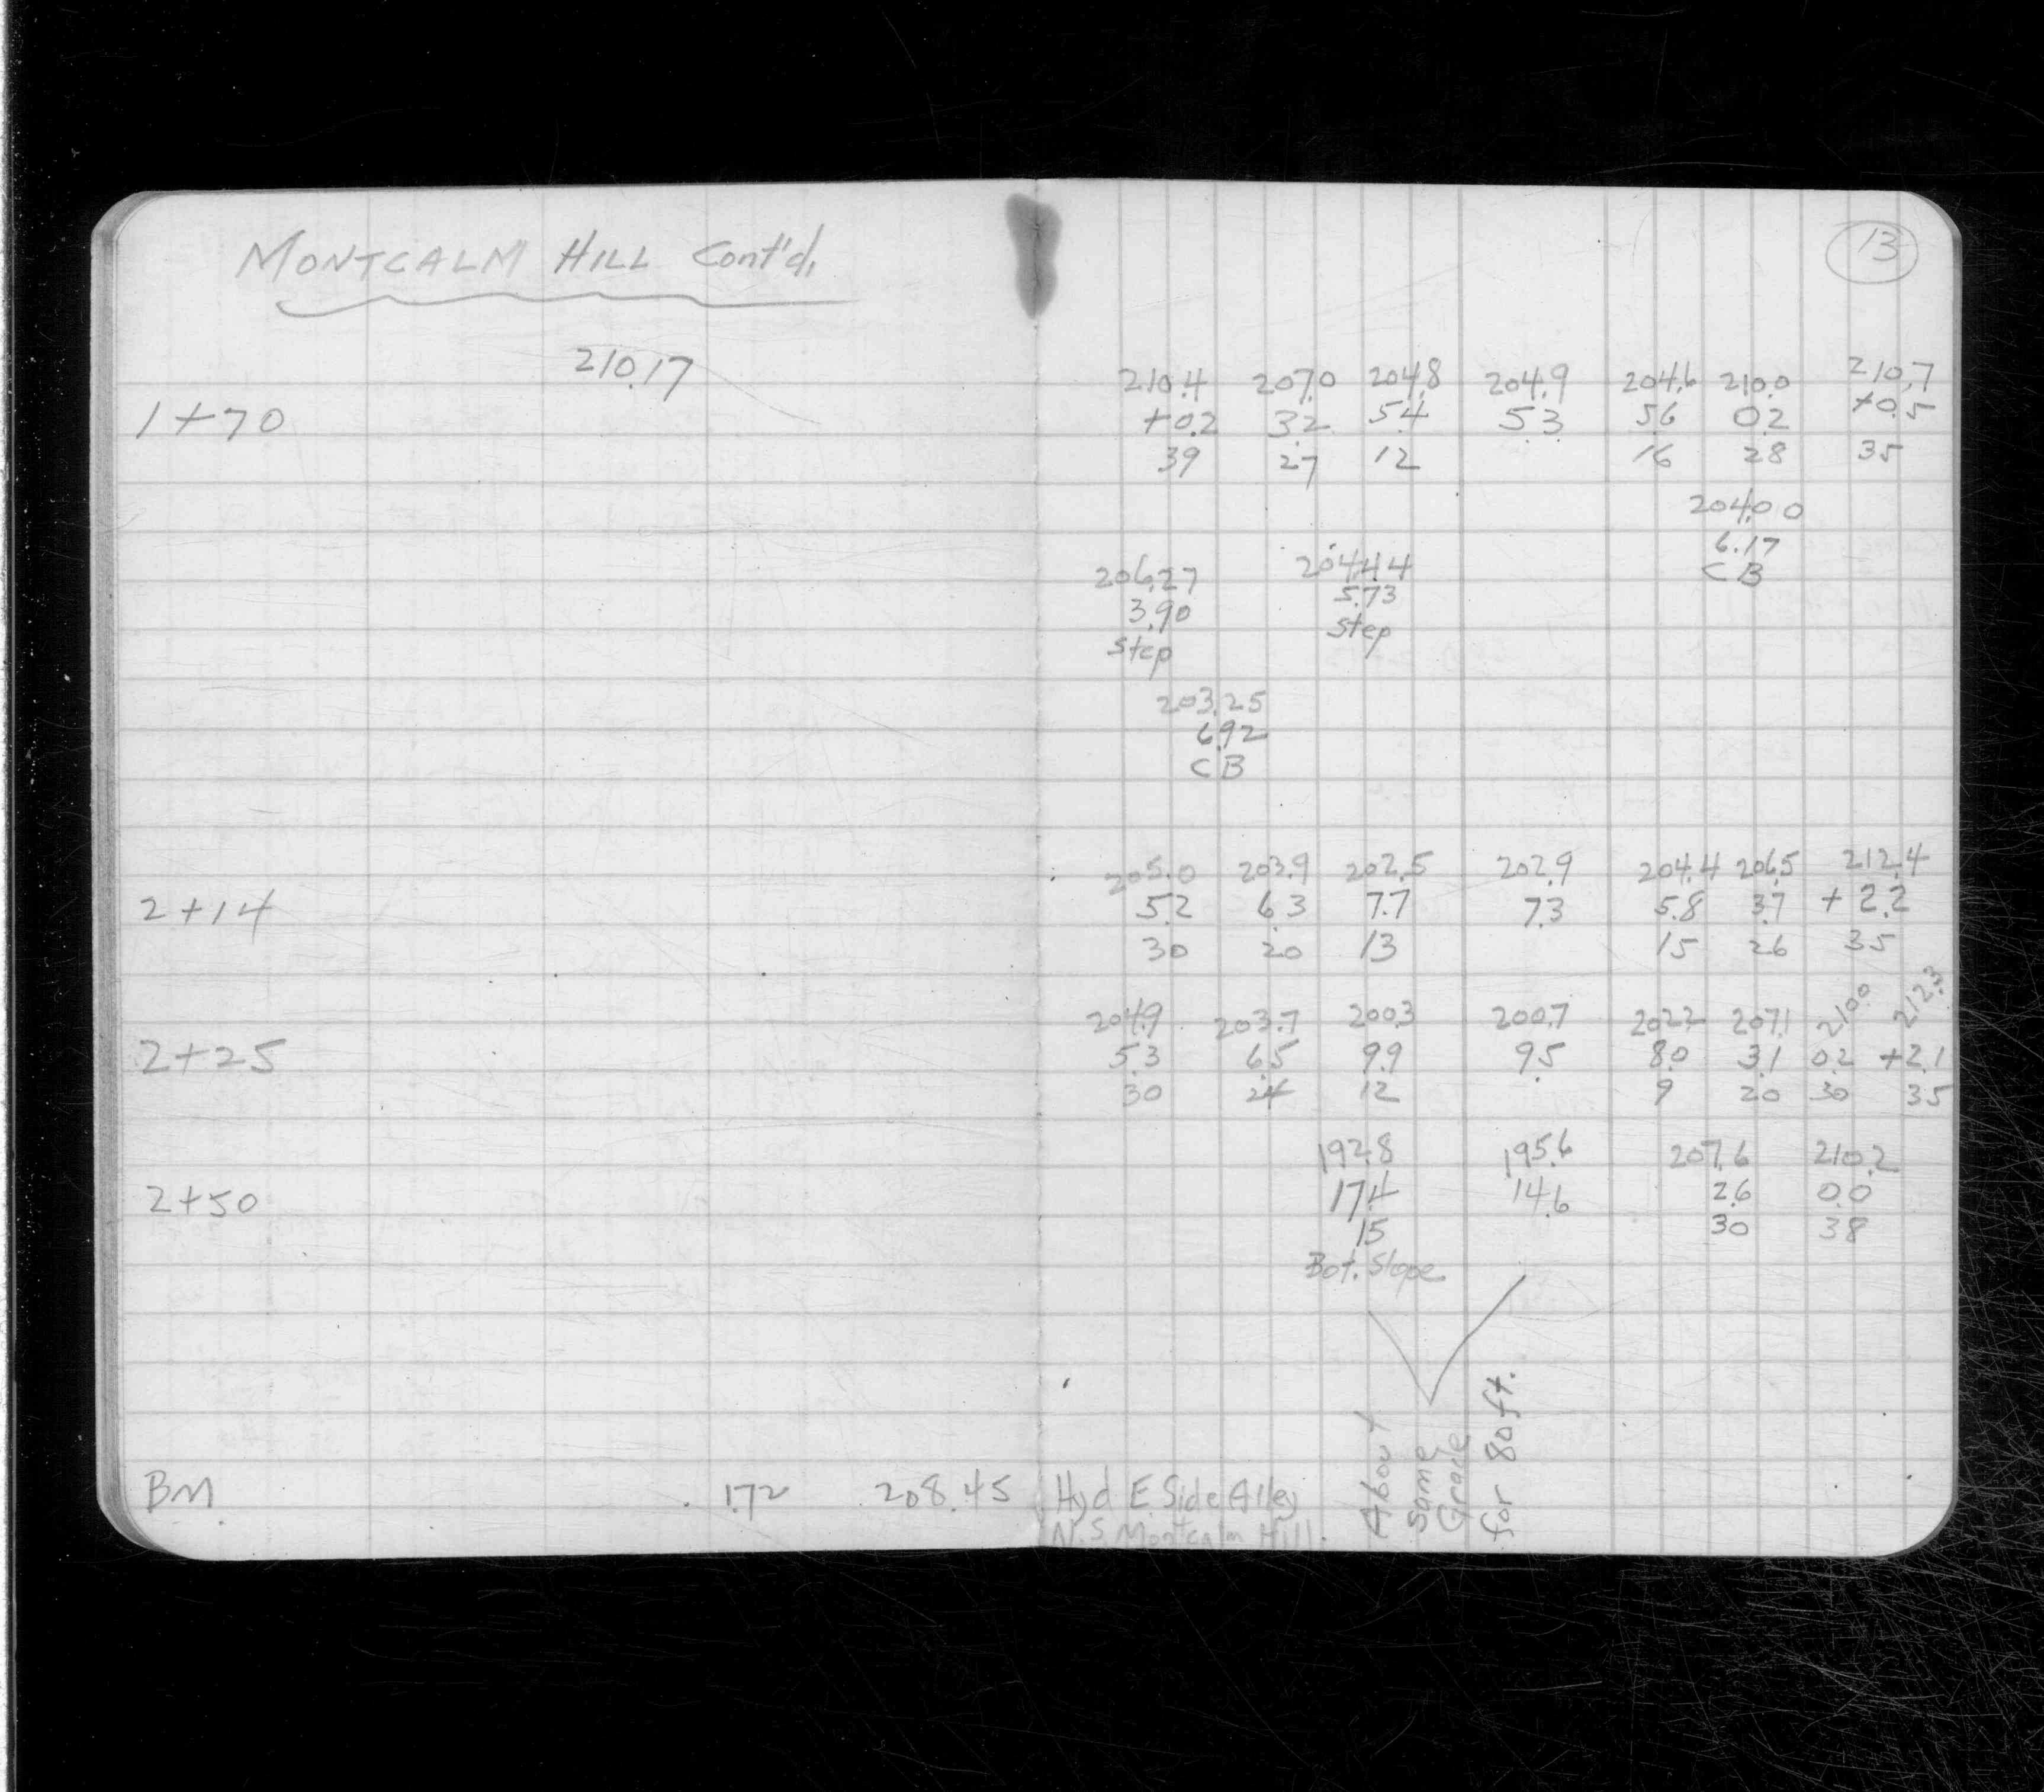 MONTCALM HILL Cont'd.
13
210.17
210.4 207.0 204.8 204.9 204.6 210.0 210.7
1+70 +0.2 3.2 5.4 5.3 5.6 0.2 +0.5
39 27 12 16 28 35
204.00
6.17
CB
206.27 204.44
3.90 5.73
Step Step
203.25
6.92
CB
205.0 203.9 202.5 202.9 204.4 206.5 212.4
2+14 5.2 6.3 7.7 7.3 5.8 3.7 +2.2
30 20 13 15 26 35
204.9 203.7 200.3 200.7 202.2 207.1 210.0 212.3
2+25 5.3 6.5 9.9 9.5 8.0 3.1 0.2 +2.1
30 24 12 9 20 30 35
192.8 195.6 207.6 210.2
2+50 17.4 14.6 2.6 0.0
15 30 38
Bot. Slope
About
Same
Grade
for 80 ft.
BM 1.72 208.45 Hyd E. Side Alley
N.S Montcalm Hill.